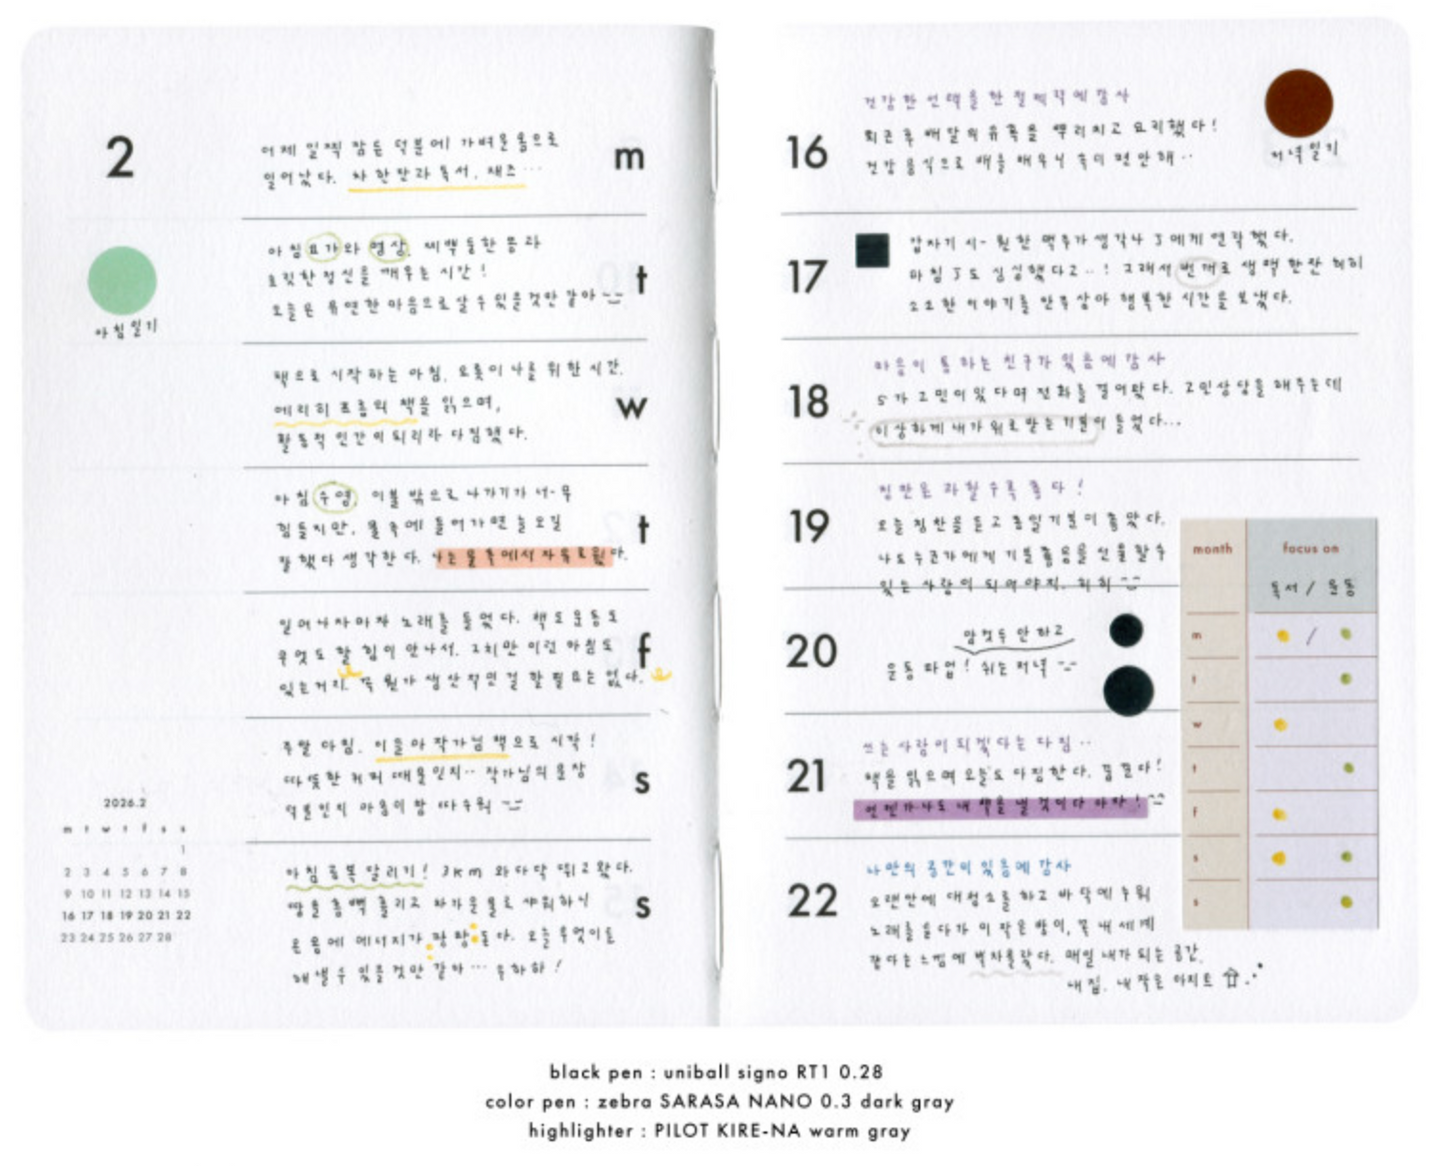 2
아침일기
어제 일찍 잠든 덕분에 가벼운 몸으로
일어났다. 차 한잔과 독서, 재즈…
m
아침 요가와 명상. 삐뚤한 몸과
오롯한 정신을 깨우는 시간!
오늘은 유연한 마음으로 살 수 있을 것만 같아
t
책으로 시작하는 아침. 오롯이 나를 위한 시간.
에리히 프롬의 책을 읽으며,
활동적 인간이 되리라 다짐했다.
w
아침 수영. 이불 밖으로 나가기가 너-무
힘들지만, 물 속에 들어가면 늘 오길
잘 했다 생각한다. 나는 물 속에서 자유로웠다.
t
일어나자마자 노래를 들었다. 책도 운동도
무엇도 할 힘이 안 나서. 그치만 이런 아침도
있는거지. 꼭 뭔가 생산적인 걸 할 필요는 없다.
f
주말 아침. 이슬아 작가님 책으로 시작!
따뜻한 커피 때문인지·· 작가님의 문장
덕분인지 마음이 참 따수워
s
아침 공복 달리기! 3km 와다닥 뛰고 왔다.
땀을 흠뻑 흘리고 차가운 물로 샤워하니
온 몸에 에너지가 팡팡 돈다. 오늘 무엇이든
해낼 수 있을 것만 같아… 우하하!
s
2026.2
m t w t f s s
1
2 3 4 5 6 7 8
9 10 11 12 13 14 15
16 17 18 19 20 21 22
23 24 25 26 27 28
저녁일기
16
건강한 선택을 한 절제력에 감사
퇴근 후 배달의 유혹을 뿌리치고 요리했다!
건강 음식으로 배를 채우니 속이 편안해··
17
갑자기 시-원한 맥주가 생각나 J에게 연락했다.
마침 J도 심심했다고··! 그래서 번개로 생맥 한잔 히히
소소한 이야기를 안주 삼아 행복한 시간을 보냈다.
18
마음이 통하는 친구가 있음에 감사
S가 고민이 있다며 전화를 걸어왔다. 고민상담을 해주는데
이상하게 내가 위로 받는 기분이 들었다…
19
칭찬은 과할수록 좋다!
오늘 칭찬을 듣고 종일 기분이 좋았다.
나도 누군가에게 기분 좋음을 선물할 수
있는 사람이 되어야지. 히히
20
암것두 안하고
운동 타임! 쉬는 저녁
21
쓰는 사람이 되겠다는 다짐··
책을 읽으며 오늘도 다짐한다. 쓸 쓴다!
언젠가 나도 내 책을 낼 것이다 아자!
22
나만의 공간이 있음에 감사
오랜만에 대청소를 하고 바닥에 누워
노래를 듣다가 이 작은 방이, 꼭 내 세계
같다는 느낌에 벅차올랐다. 매일 내가 되는 공간.
내 집. 내 작은 아지트
month focus on
독서 / 운동
m /
t
w
t
f
s
s
black pen : uniball signo RT1 0.28
color pen : zebra SARASA NANO 0.3 dark gray
highlighter : PILOT KIRE-NA warm gray